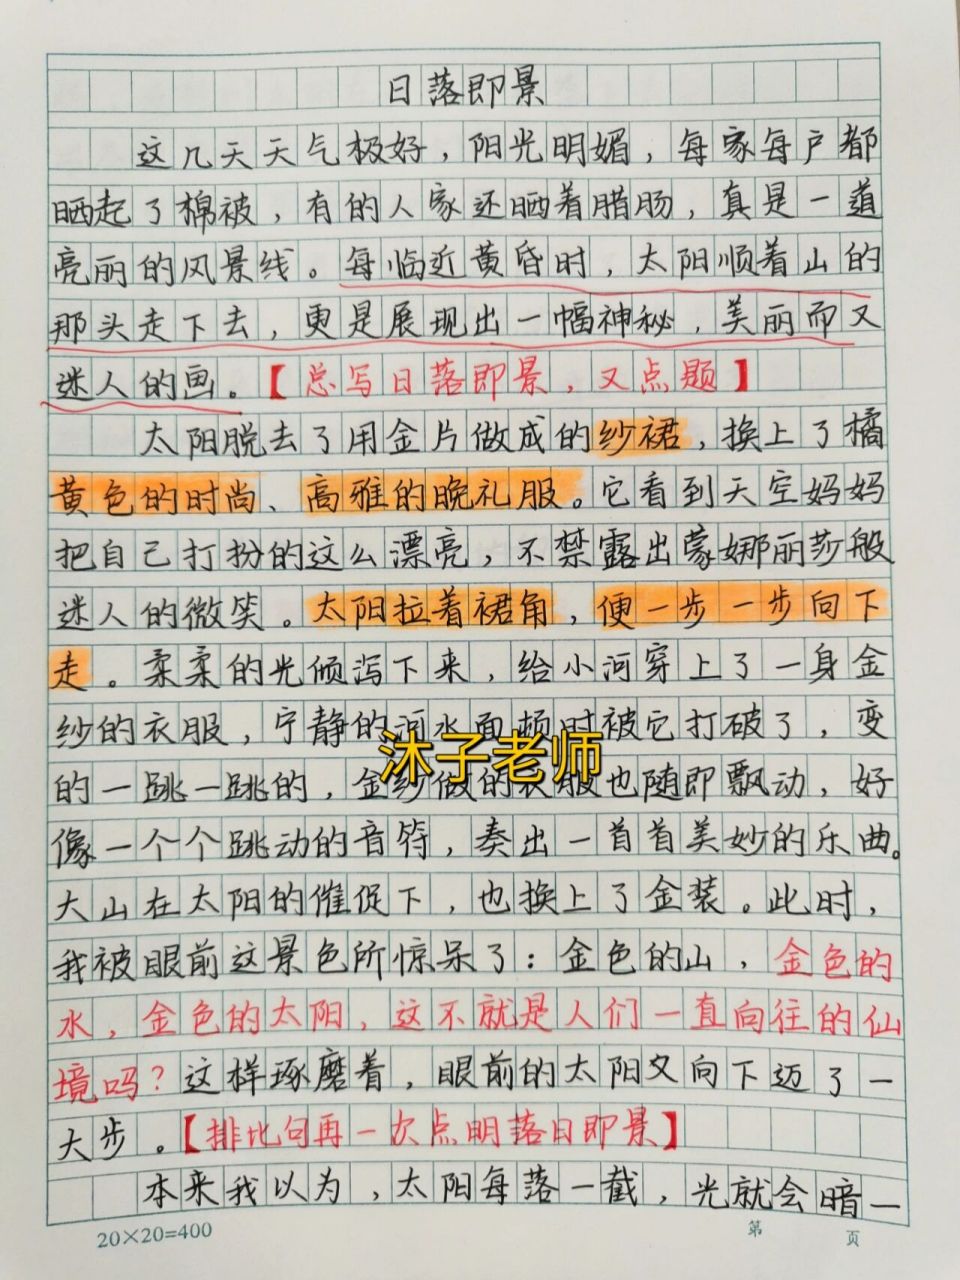 日落即景
这几天天气极好，阳光明媚，每家每户都
晒起了棉被，有的人家还晒着腊肠，真是一道
亮丽的风景线。每临近黄昏时，太阳顺着山的
那头走下去，更是展现出一幅神秘，美丽而又
迷人的画。【总写日落即景，又点题】
太阳脱去了用金片做成的纱裙，换上了橘
黄色的时尚、高雅的晚礼服。它看到天空妈妈
把自己打扮的这么漂亮，不禁露出蒙娜丽莎般
迷人的微笑。太阳拉着裙角，便一步一步向下
走。柔柔的光倾泻下来，给小河穿上了一身金
纱的衣服，宁静的河水面顿时被它打破了，变
沐子老师
的一跳一跳的，金纱做的衣服也随即飘动，好
像一个个跳动的音符，奏出一首首美妙的乐曲。
大山在太阳的催促下，也换上了金装。此时，
我被眼前这景色所惊呆了：金色的山，金色的
水，金色的太阳，这不就是人们一直向往的仙
境吗？这样琢磨着，眼前的太阳又向下迈了一
大步。【排比句再一次点明落日即景】
本来我以为，太阳每落一截，光就会暗一
20×20=400
第 页